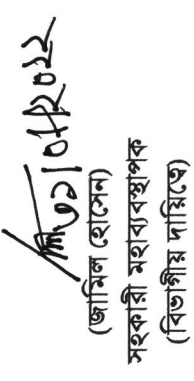 ৩১/০৮/২০২২
(জামিল হোসেন)
সহকারী মহাব্যবস্থাপক
(বিভাগীয় দায়িত্বে)